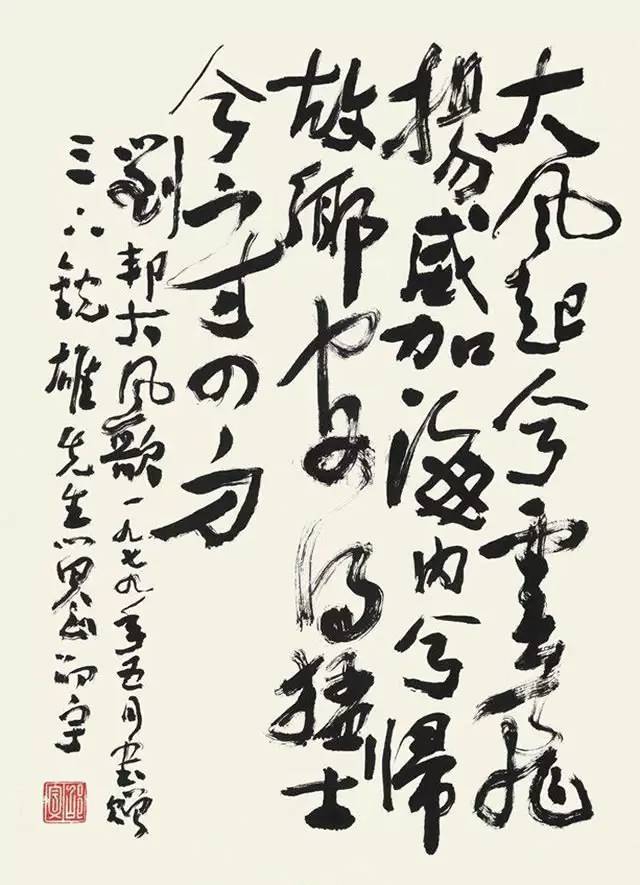 大風起兮雲飛
揚威加海内兮歸
故鄉安得猛士
兮守四方
劉邦大風歌一九七九年五月書贈
三六雄先生邵宇